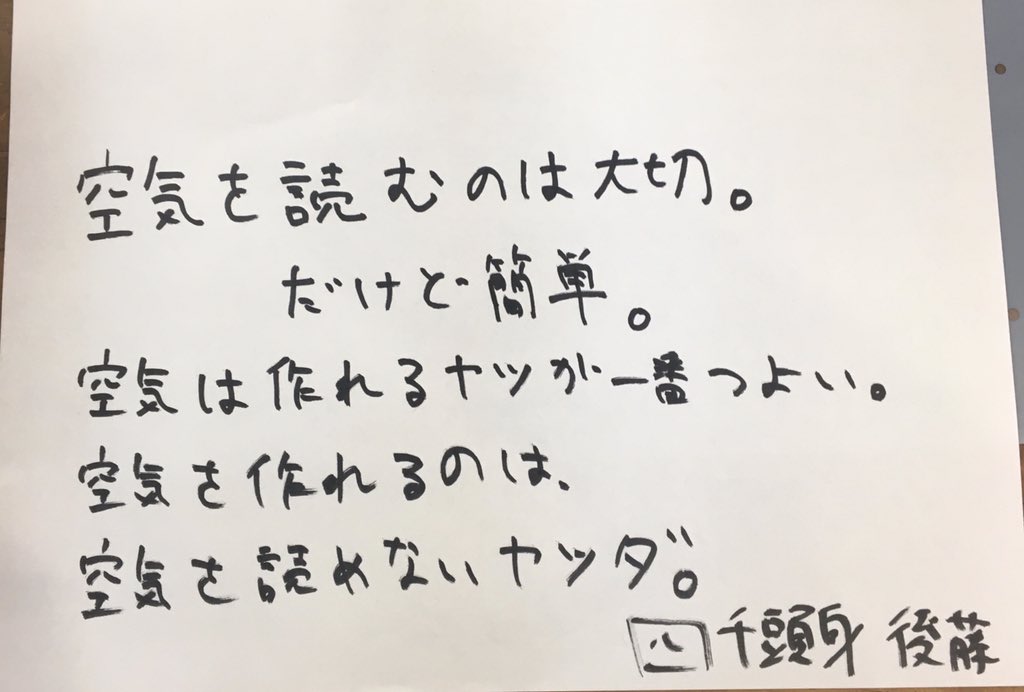 空気を読むのは大切。
だけど簡単。
空気は作れるヤツが一番つよい。
空気を作れるのは、
空気を読めないヤツダ。
四千頭身 後藤